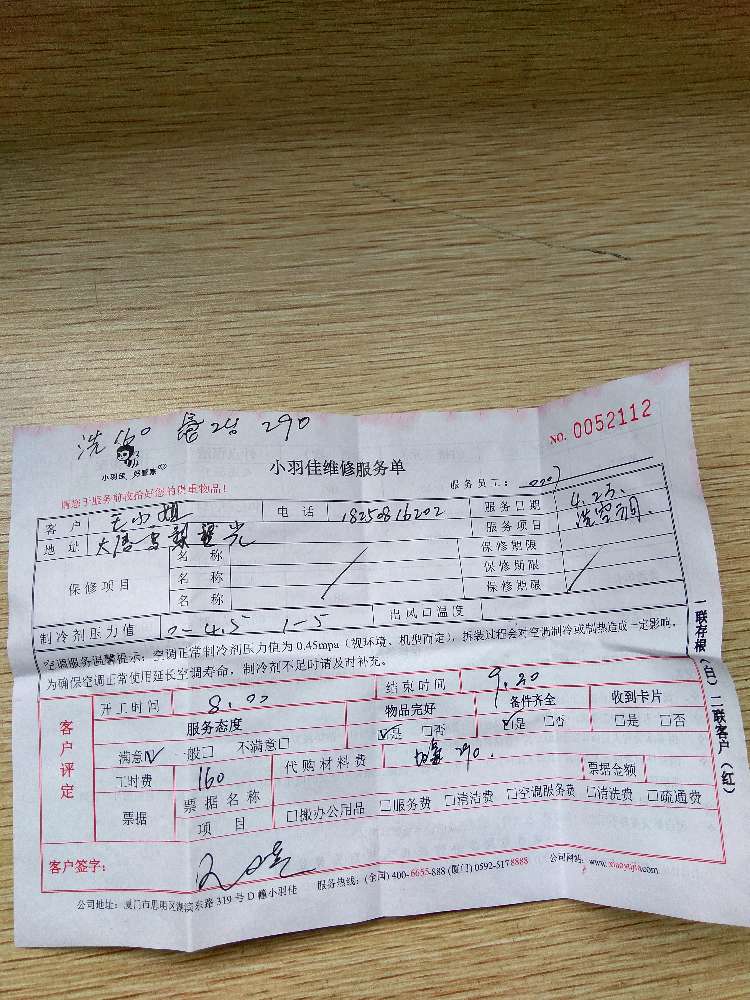 洗160 2台 290
NO. 0052112
小羽佳
小羽佳维修服务单
服务员工：
请您于服务前收拾好您的贵重物品！
客户 小姐 电话 18250816202 服务日期 4.23.
地址 大唐 服务项目 洗空调
保修项目 名称 保修期限
名称 保修期限
名称 保修期限
制冷剂压力值 0-4.5 1-5 出风口温度
空调服务温馨提示：空调正常制冷剂压力值为 0.45mpa（视环境、机型而定），拆装过程会对空调制冷或制热造成一定影响，
为确保空调正常使用延长空调寿命，制冷剂不足时请及时补充。
客户评定
开工时间 8.00 结束时间 9.20
服务态度 物品完好 备件齐全 收到卡片
满意☑ 一般□ 不满意□ ☑是 □否 ☑是 □否 □是 □否
工时费 160 代购材料费 290. 票据金额
票据 票据名称
项目 □搬办公用品 □服务费 □清洁费 □空调服务费 □清洗费 □疏通费
客户签字：
公司地址：厦门市思明区湖滨东路 319 号 D 幢小羽佳 服务热线：(全国) 400-6655-888 (厦门) 0592-5178888 公司网站：www.xiaoyujia.com
一联存根（白）二联客户（红）